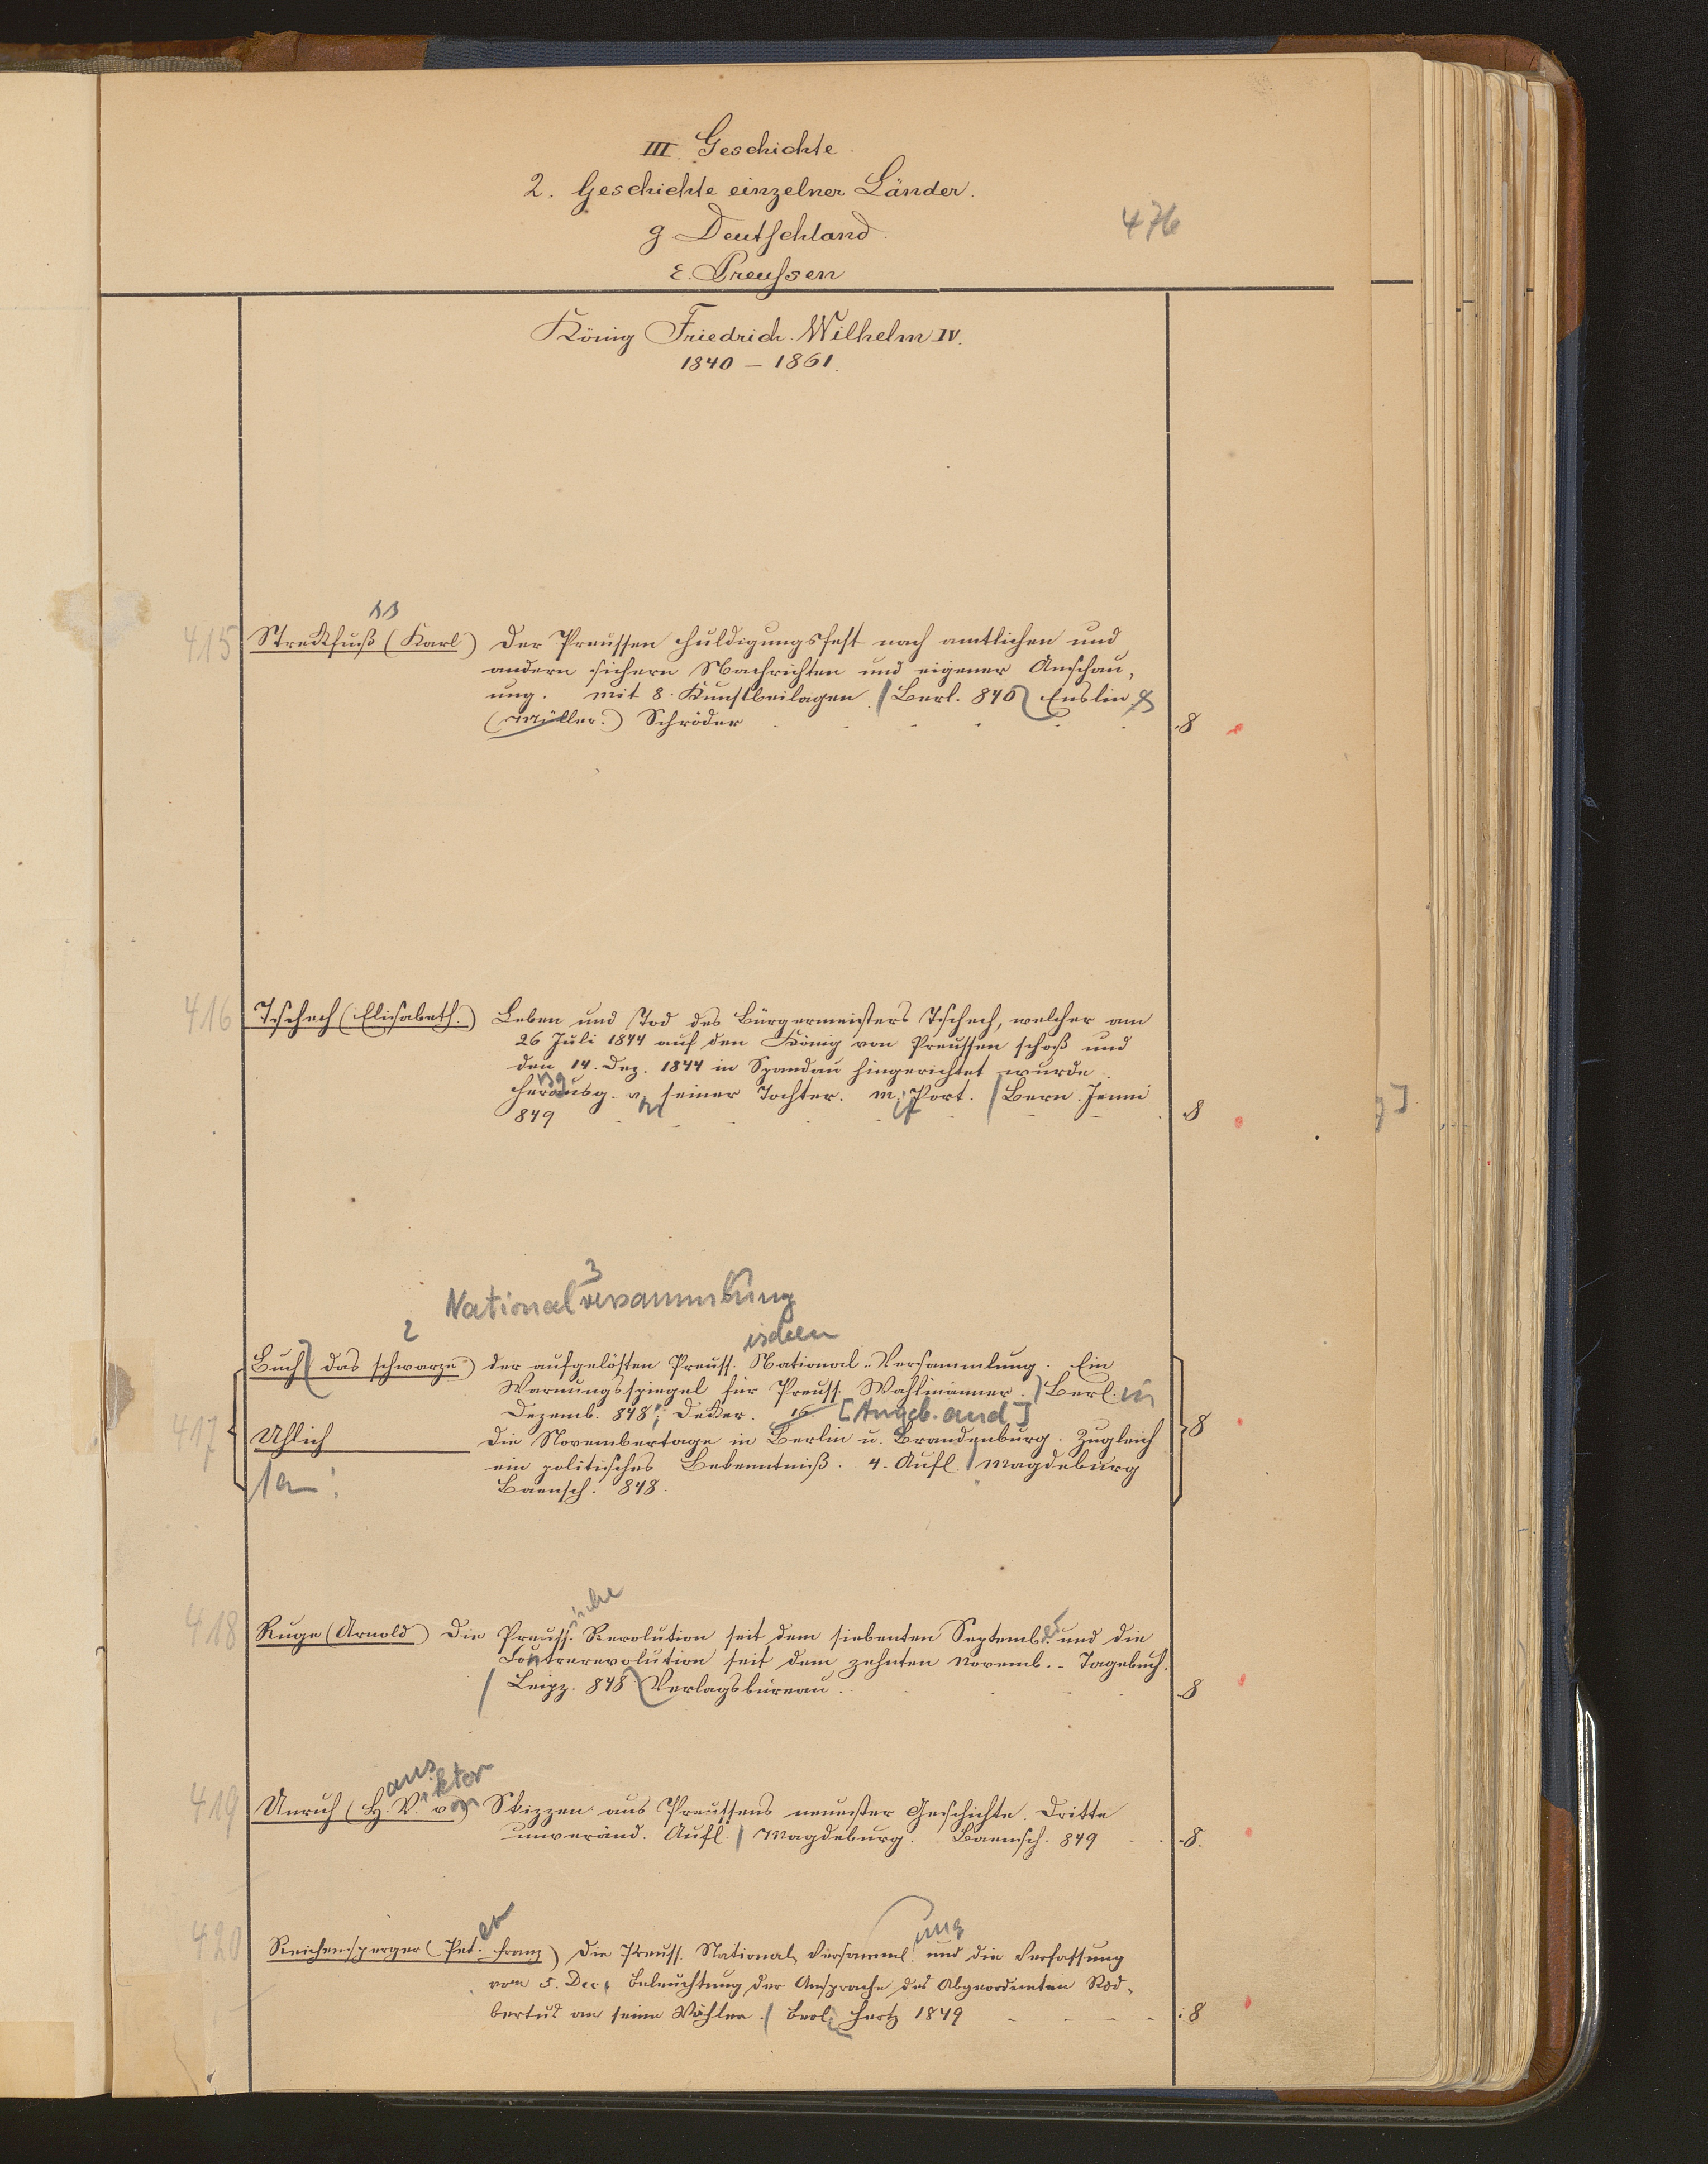 III. Geschichte.
2. Geschichte einzelner Länder.
g. Deutschland.
476
ε. Preussen
König Friedrich Wilhelm IV.
1840 – 1861.
ss
415 Streckfuß (Karl) Der Preussen Huldigungsfest nach amtlichen und
andern sichern Nachrichten und eigener Anschau-
ung. Mit 8 Kunstbeilagen / Berl. 840 Enslin &
(Müller.) Schröder 8
416 Tschech (Elisabeth.) Leben und Tod des Bürgermeisters Tschech, welcher am
26 Juli 1844 auf den König von Preussen schoß und
den 14. Dez. 1844 in Spandau hingerichtet wurde.
Herausg. v. seiner Tochter. M. Port. / Bern. Jenni
849 8
3
Nationalversammlung
2 ischen
Buch (das schwarze) der aufgelösten Preuss. National-Versammlung. Ein
Warnungsspiegel für Preuss. Wahlmänner. / Berl. in
Dezemb. 848; Decker. 16. [Angeb. and]
417 Uhlich Die Novembertage in Berlin u. Brandenburg. Zugleich 8
ein politisches Bekenntniß. 4. Aufl. / Magdeburg
Baensch. 848.
ische
418 Ruge (Arnold) Die Preuss. Revolution seit dem siebenten Septemb. und die
Contrerevolution seit dem zehnten Novemb. - Tagebuch.
/ Leipz. 848 Verlagsbüreau. 8
ans iktor
419 Unruh (H. V. von Skizzen aus Preussens neuester Geschichte. Dritte
unveränd. Aufl. / Magdeburg. Baensch. 849 8.
er ung
420 Reichensperger (Pet. Franz) Die Preuss. National Versamml. und die Verfassung
vom 5. Dec. Beleuchtung der Ansprache des Abgeordneten Rod-
bertus an seine Wähler. / Berl. Hertz 1849 8